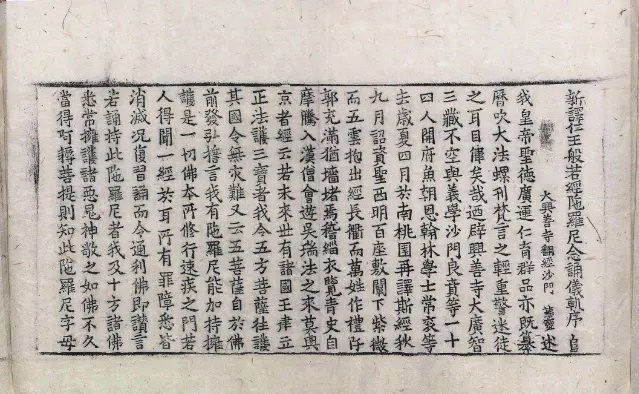 新譯仁王般若經陁羅尼念誦儀軌序
大興善寺翻經沙門 慧靈 述
我皇帝聖德廣運仁育群品亦既纂
曆吹大法螺刊梵言之輕重警迷徒
之耳目偉矣哉迺辟興善寺大廣智
三藏不空與義學沙門良賁等一十
四人開府魚朝恩翰林學士常袞等
去歲夏四月於南桃園再譯斯經秋
九月詔資聖西明百座敷闡下紫微
而五雲抱出經長衢而萬姓作禮阡
郭充滿猶墻堵焉稽緇衣覽青史自
摩騰入漢僧會遊吳瑞法之來莫與
京者經云若未來世有諸國王建立
正法護三寶者我令五方菩薩往護
其國令無灾難又云五菩薩自於佛
前發弘誓言我有陁羅尼能加持擁
護是一切佛本所修行速疾之門若
人得聞一經於耳所有罪障悉皆
消滅況復習誦而令通利佛即讚言
若誦持此陁羅尼者我及十方諸佛
悉常擁護諸惡鬼神敬之如佛不久
當得阿耨菩提則知此陁羅尼字母